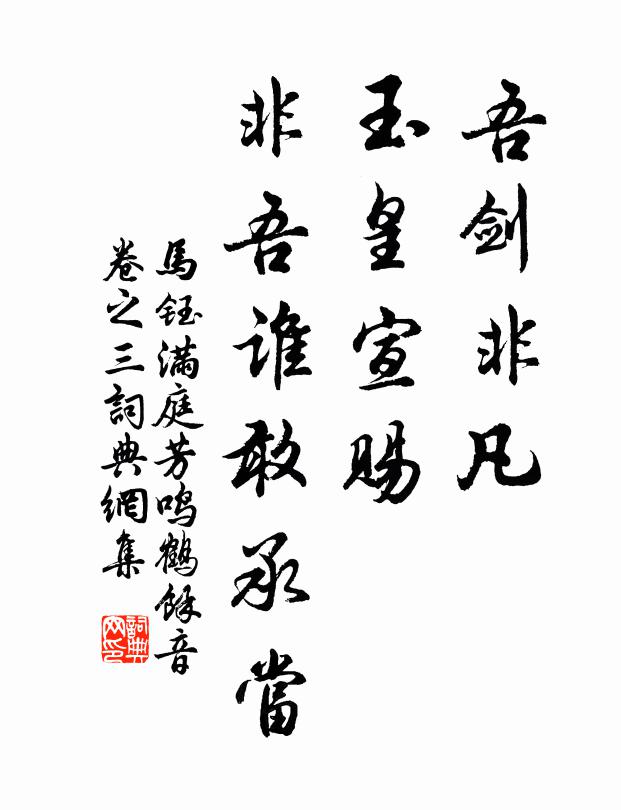 吾剑非凡
玉皇宣赐
非吾谁敢承當
馬鈺滿庭芳鸣鶴餘音
卷之三詞典網集
詞典网印